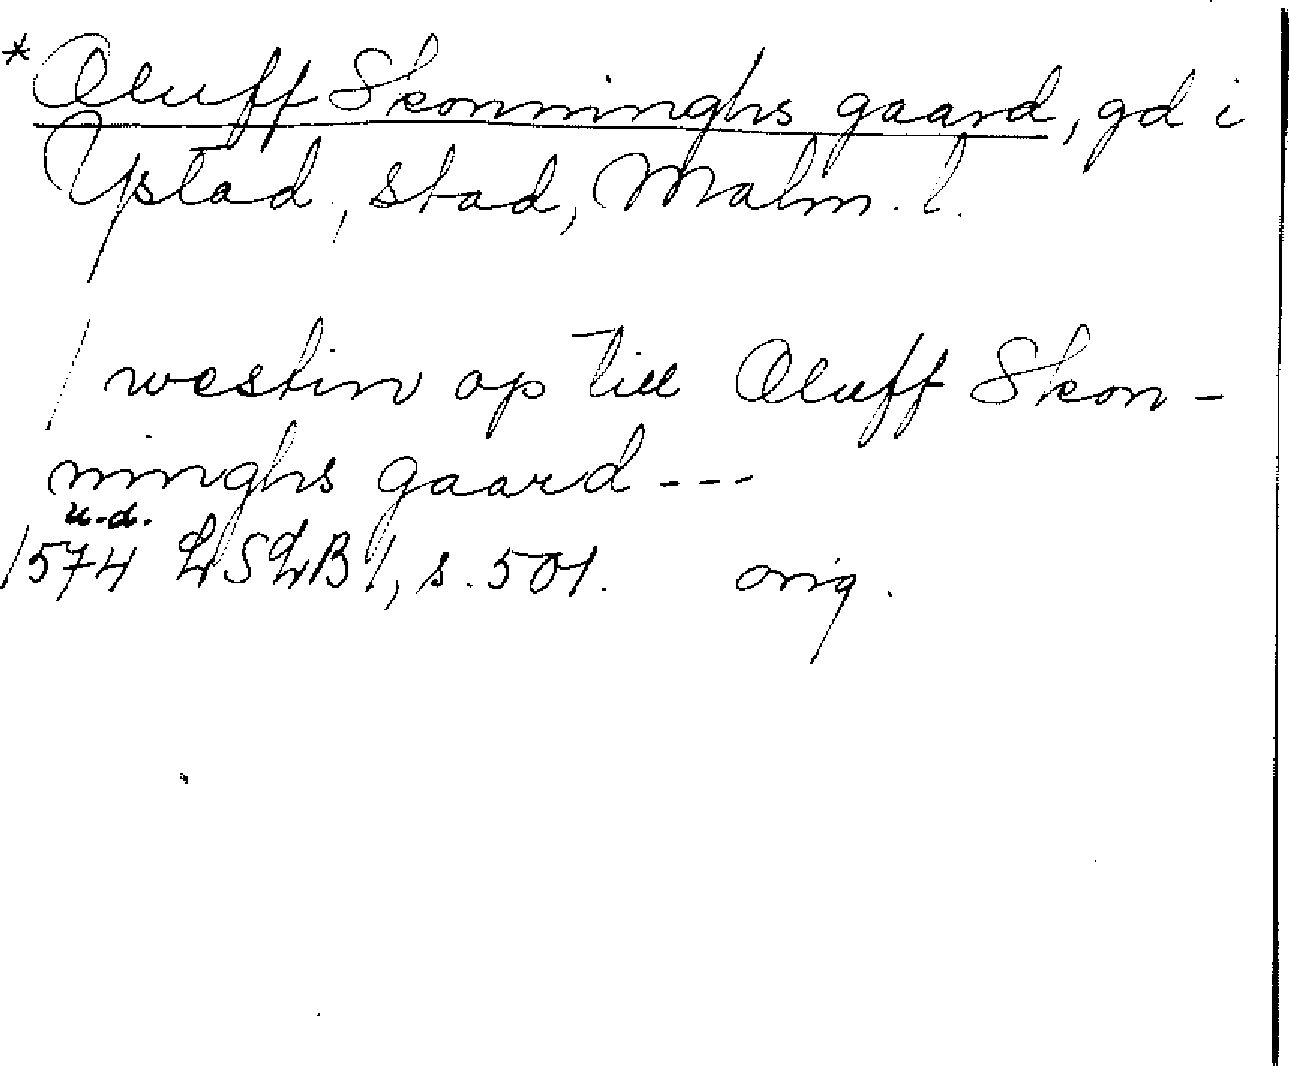 *Oluff Skonninghs gaard, gd i
Ystad, stad, Malm. l.
/ westin op till Oluff Skon-
ninghs gaard ---
u.d.
1574 LSLB I, s. 501. orig.